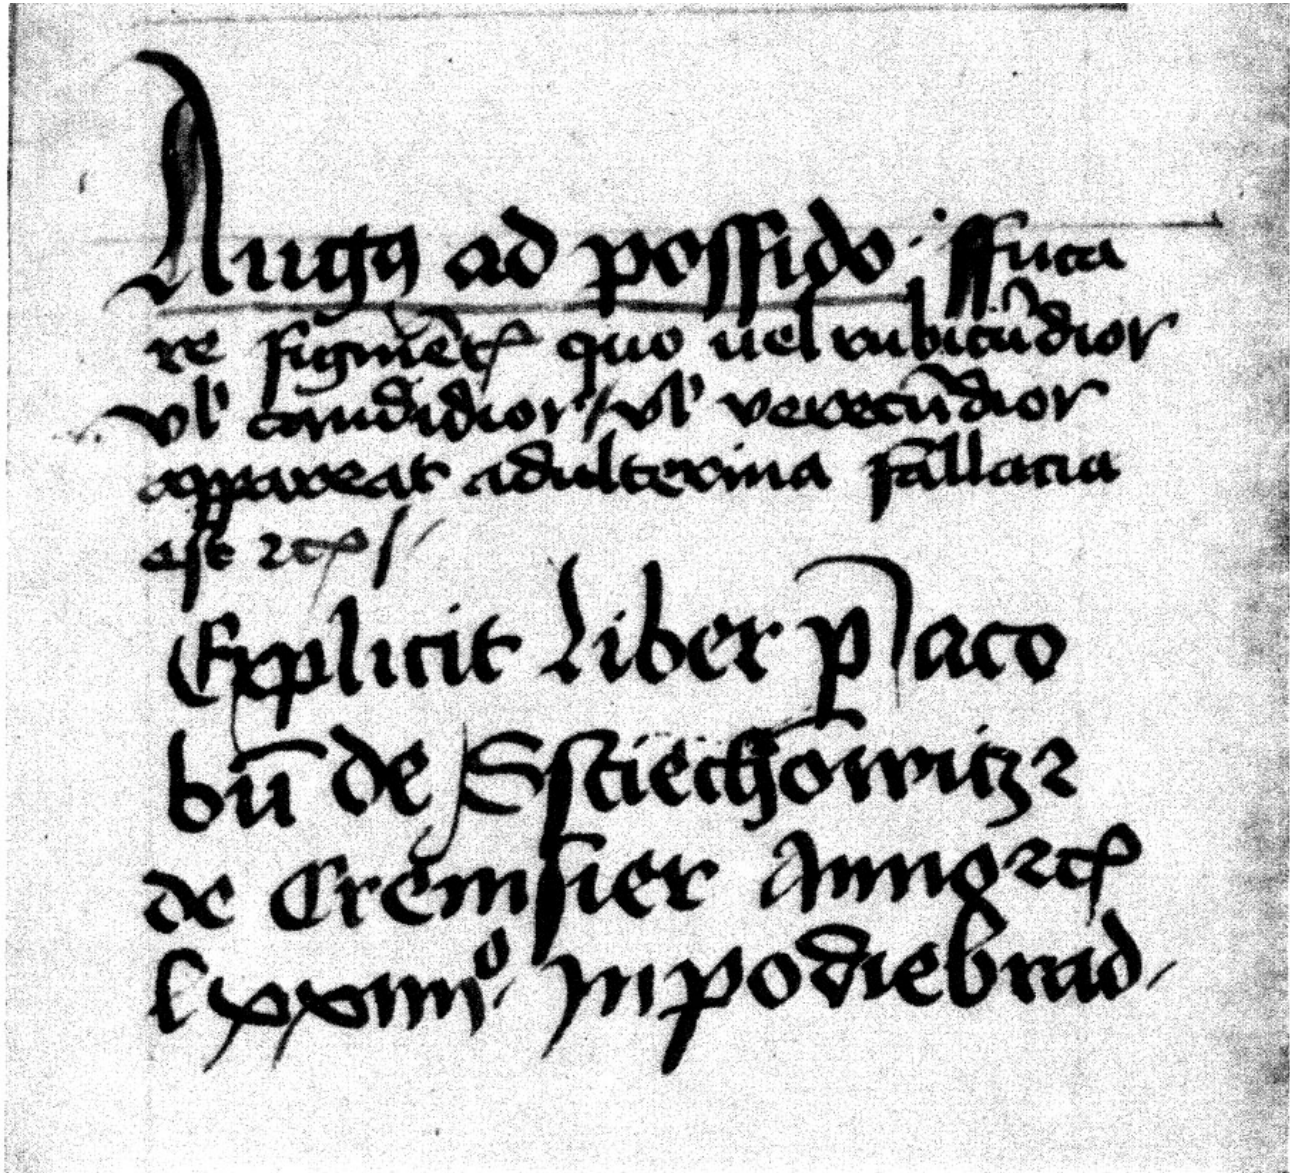 Augꝯ ad possido · ffuca
re figmētꝭ quo uel rubicūdior
vlˀ candidior / vlˀ verecūdior
appareat adulterina fallacia
est ⁊cꝭ /
Explicit Liber p Jaco
bū de Sstiechowitz ⁊
de Cremsier Anno ⁊cꝭ
lxxiiiiº · In podiebrad /